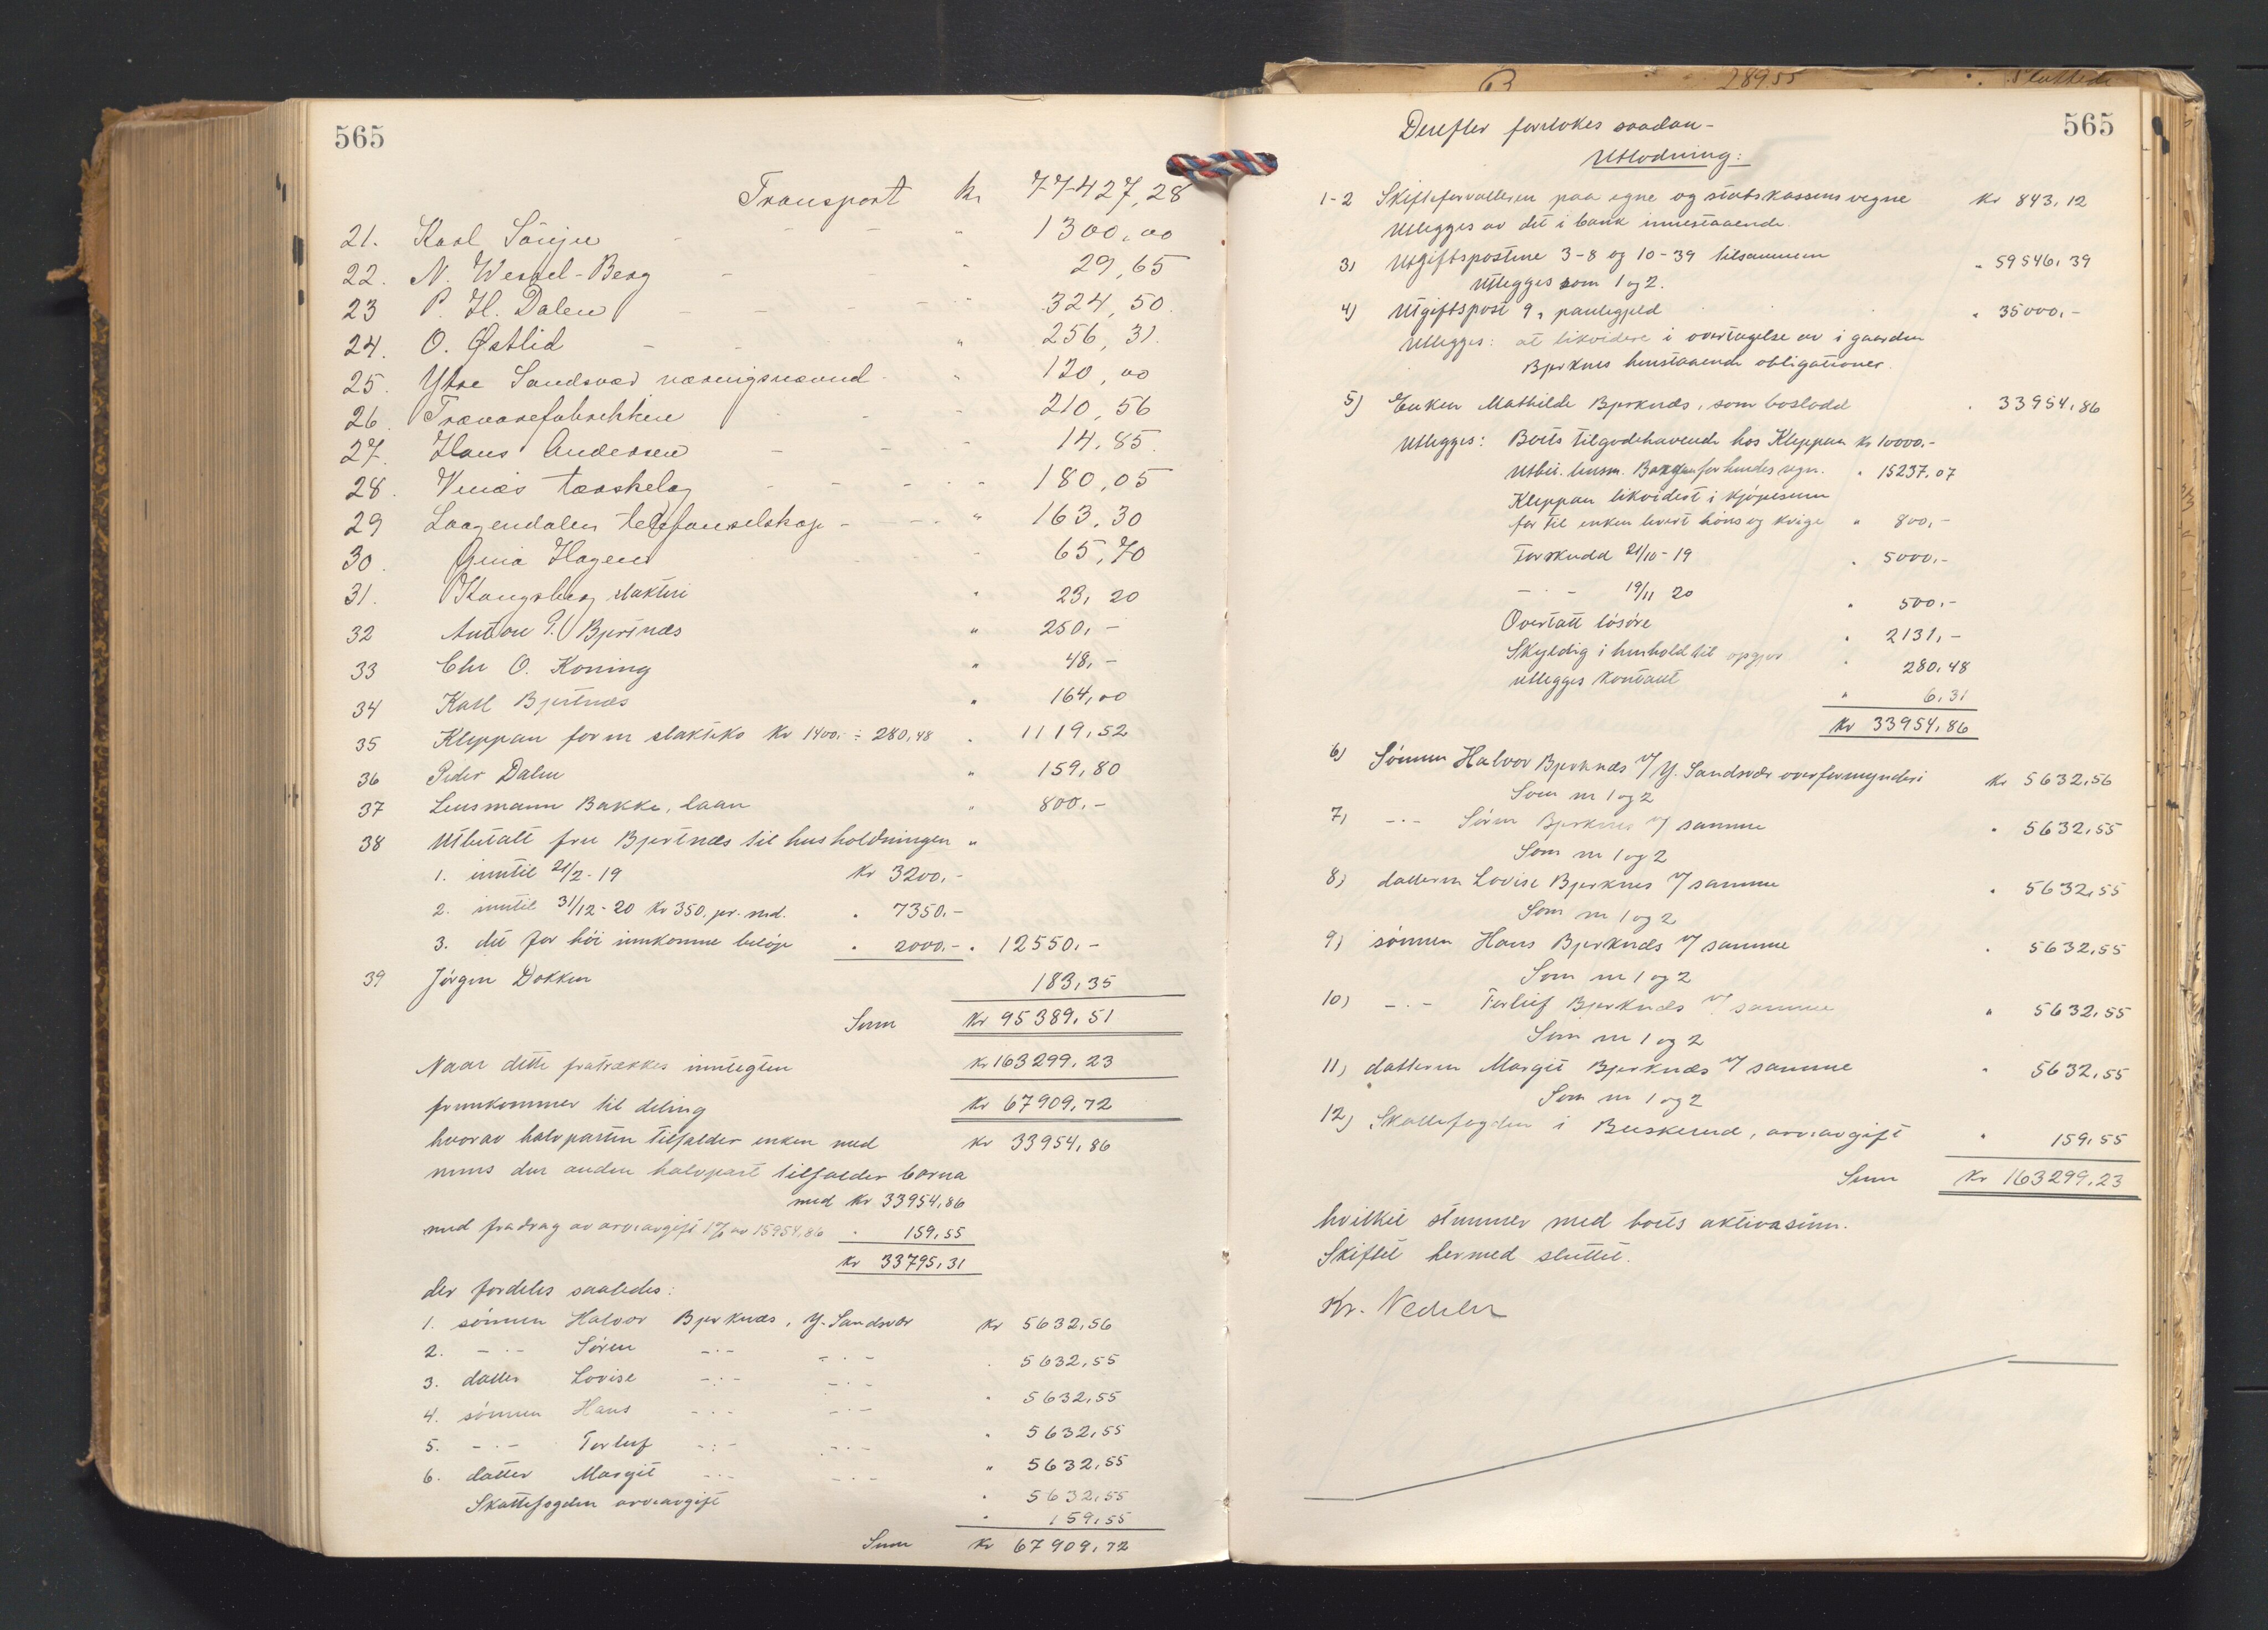 565
Transport kr 77427,28
21. Karl Sönju " 1300,00
22. N. Wessel-Berg " 29,65
23 P. H. Dalen " 324,50
24. O. Østlid " 256,31
25. Ytre Sandsvær næringsnævnd " 120,00
26. Trævarefabrikken 210,56
27. Hans Andersen - 14,85
28. Venäs tærskelag - 180,05
29 Laagendalen telefonselskap - " 163,30
30. Gina Hagen 65,70
31. Kongsberg slakteri " 23,20
32 Anton P. Bjertnæs " 250,-
33 Chr O. Koning " 48,-
34 Karl Bjertnæs " 164,00
35 Kleppan for m slaktiko kr 1400.- ÷ 280,48 " 1119,52
36 Peder Dalen " 159,80
37 Lensmann Bakke, laan " 800.-
38 Utbetalt fru Bjertnæs til husholdningen "
1. inntil 21/2-19 kr 3200,-
2. inntil 31/12-20 kr 350. pr. md. " 7350.-
3. det for höi innkomne belöp " 2000.- " 12550.-
39 Jörgen Dokken 183,35
Sum kr 95389,51
Naar dette fratrækkes inntegten kr 163299,23
fremkommer til deling kr 67909,72
hvorav halvparten tilfalder enken med kr 33954,86
mens den anden halvpart tilfalder barna
med kr 33954,86
med fradrag av arveavgift 1% av 15954,86 " 159,55
kr 33795,31
der fordeles saaledes:
1. sönnen Halvor Bjerknæs, Y. Sandsvær kr 5632,56
2. -·- Sören -·- -·- " 5632,55
3. datter Lovise -·- -·- " 5632,55
4. sönnen Hans -·- -·- " 5632,55
5. -·- Torleif -·- -·- " 5632,55
6. datter Margit -·- -·- " 5632,55
Skattefogden arveavgift " 159,55
Sum kr 67909,72
565
Derefter foretokes saadan-
Utlodning:
1-2 Skifteforvalteren paa egne og statskassens vegne kr 843,12
Utlegges av det i bank innestaaende
3) Utgiftspostene 3-8 og 10-39 tilsammen " 59546,39
Utlegges som 1 og 2.
4) Utgiftspost 9, pantegjeld " 35000,-
Utlegges: at likvidere i overtagelse av i gaarden
Bjerknes henstaaende obligationer.
5) Enken Mathilde Bjerknæs, som boslodd " 33954,86
Utlegges: Boets tilgodehavende hos Kleppan kr 10000.-
Utbet. lensm. for hendes regn. " 15237,07
Kleppan likvidert i kjöpesum
for til enken levert höns og kvige " 800,-
Forskudd 21/10-19 " 5000,-
-·- 19/11 20 " 500,-
Overtatt lösöre " 2131,-
Skyldig i henhold til opgjør " 280,48
utlegges kontant " 6,31
kr 33954,86
6) Sönnen Halvor Bjerknæs v/ Y. Sandsvær overformynderi kr 5632,56
Som nr 1 og 2
7) -·- Sören Bjerknes v/ samme " 5632,55
Som nr 1 og 2
8) datteren Lovise Bjerknes v/ samme " 5632,55
Som nr 1 og 2
9) sönnen Hans Bjerknæs v/ samme " 5632,55
Som nr 1 og 2
10) -·- Torleif Bjerknæs v/ samme " 5632,55
Som nr 1 og 2
11) datteren Margit Bjerknæs v/ samme " 5632,55
Som nr 1 og 2
12) Skattefogden i Buskerud, arveavgift " 159,55
Sum kr 163299,23
hvilket stemmer med boets aktivasum.
Skiftet hermed sluttet.
Kr.